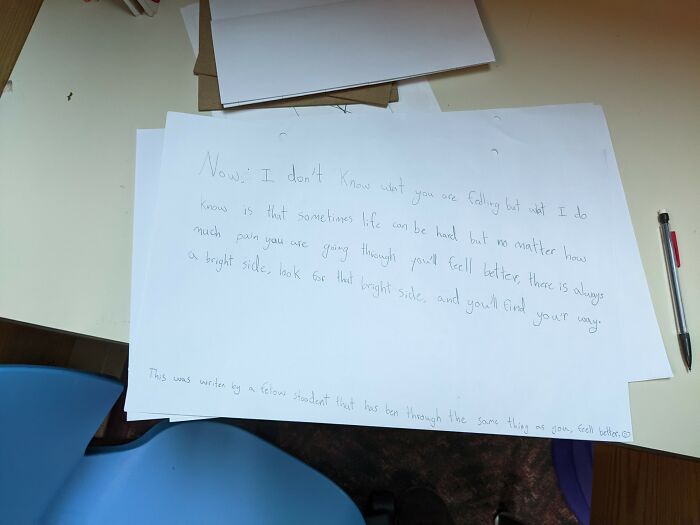 Now, I don't know wat you are felling but wat I do
know is that sometimes life can be hard but no matter how
much pain you are going through you'll feell better, there is always
a bright side, look for that bright side, and you'll find your way.
This was writen by a felow stoodent that has ben through the same thing as you, feell better. ☺